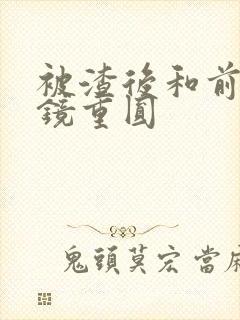 被渣後和前
鏡重圓
鬼頭莫宏 當